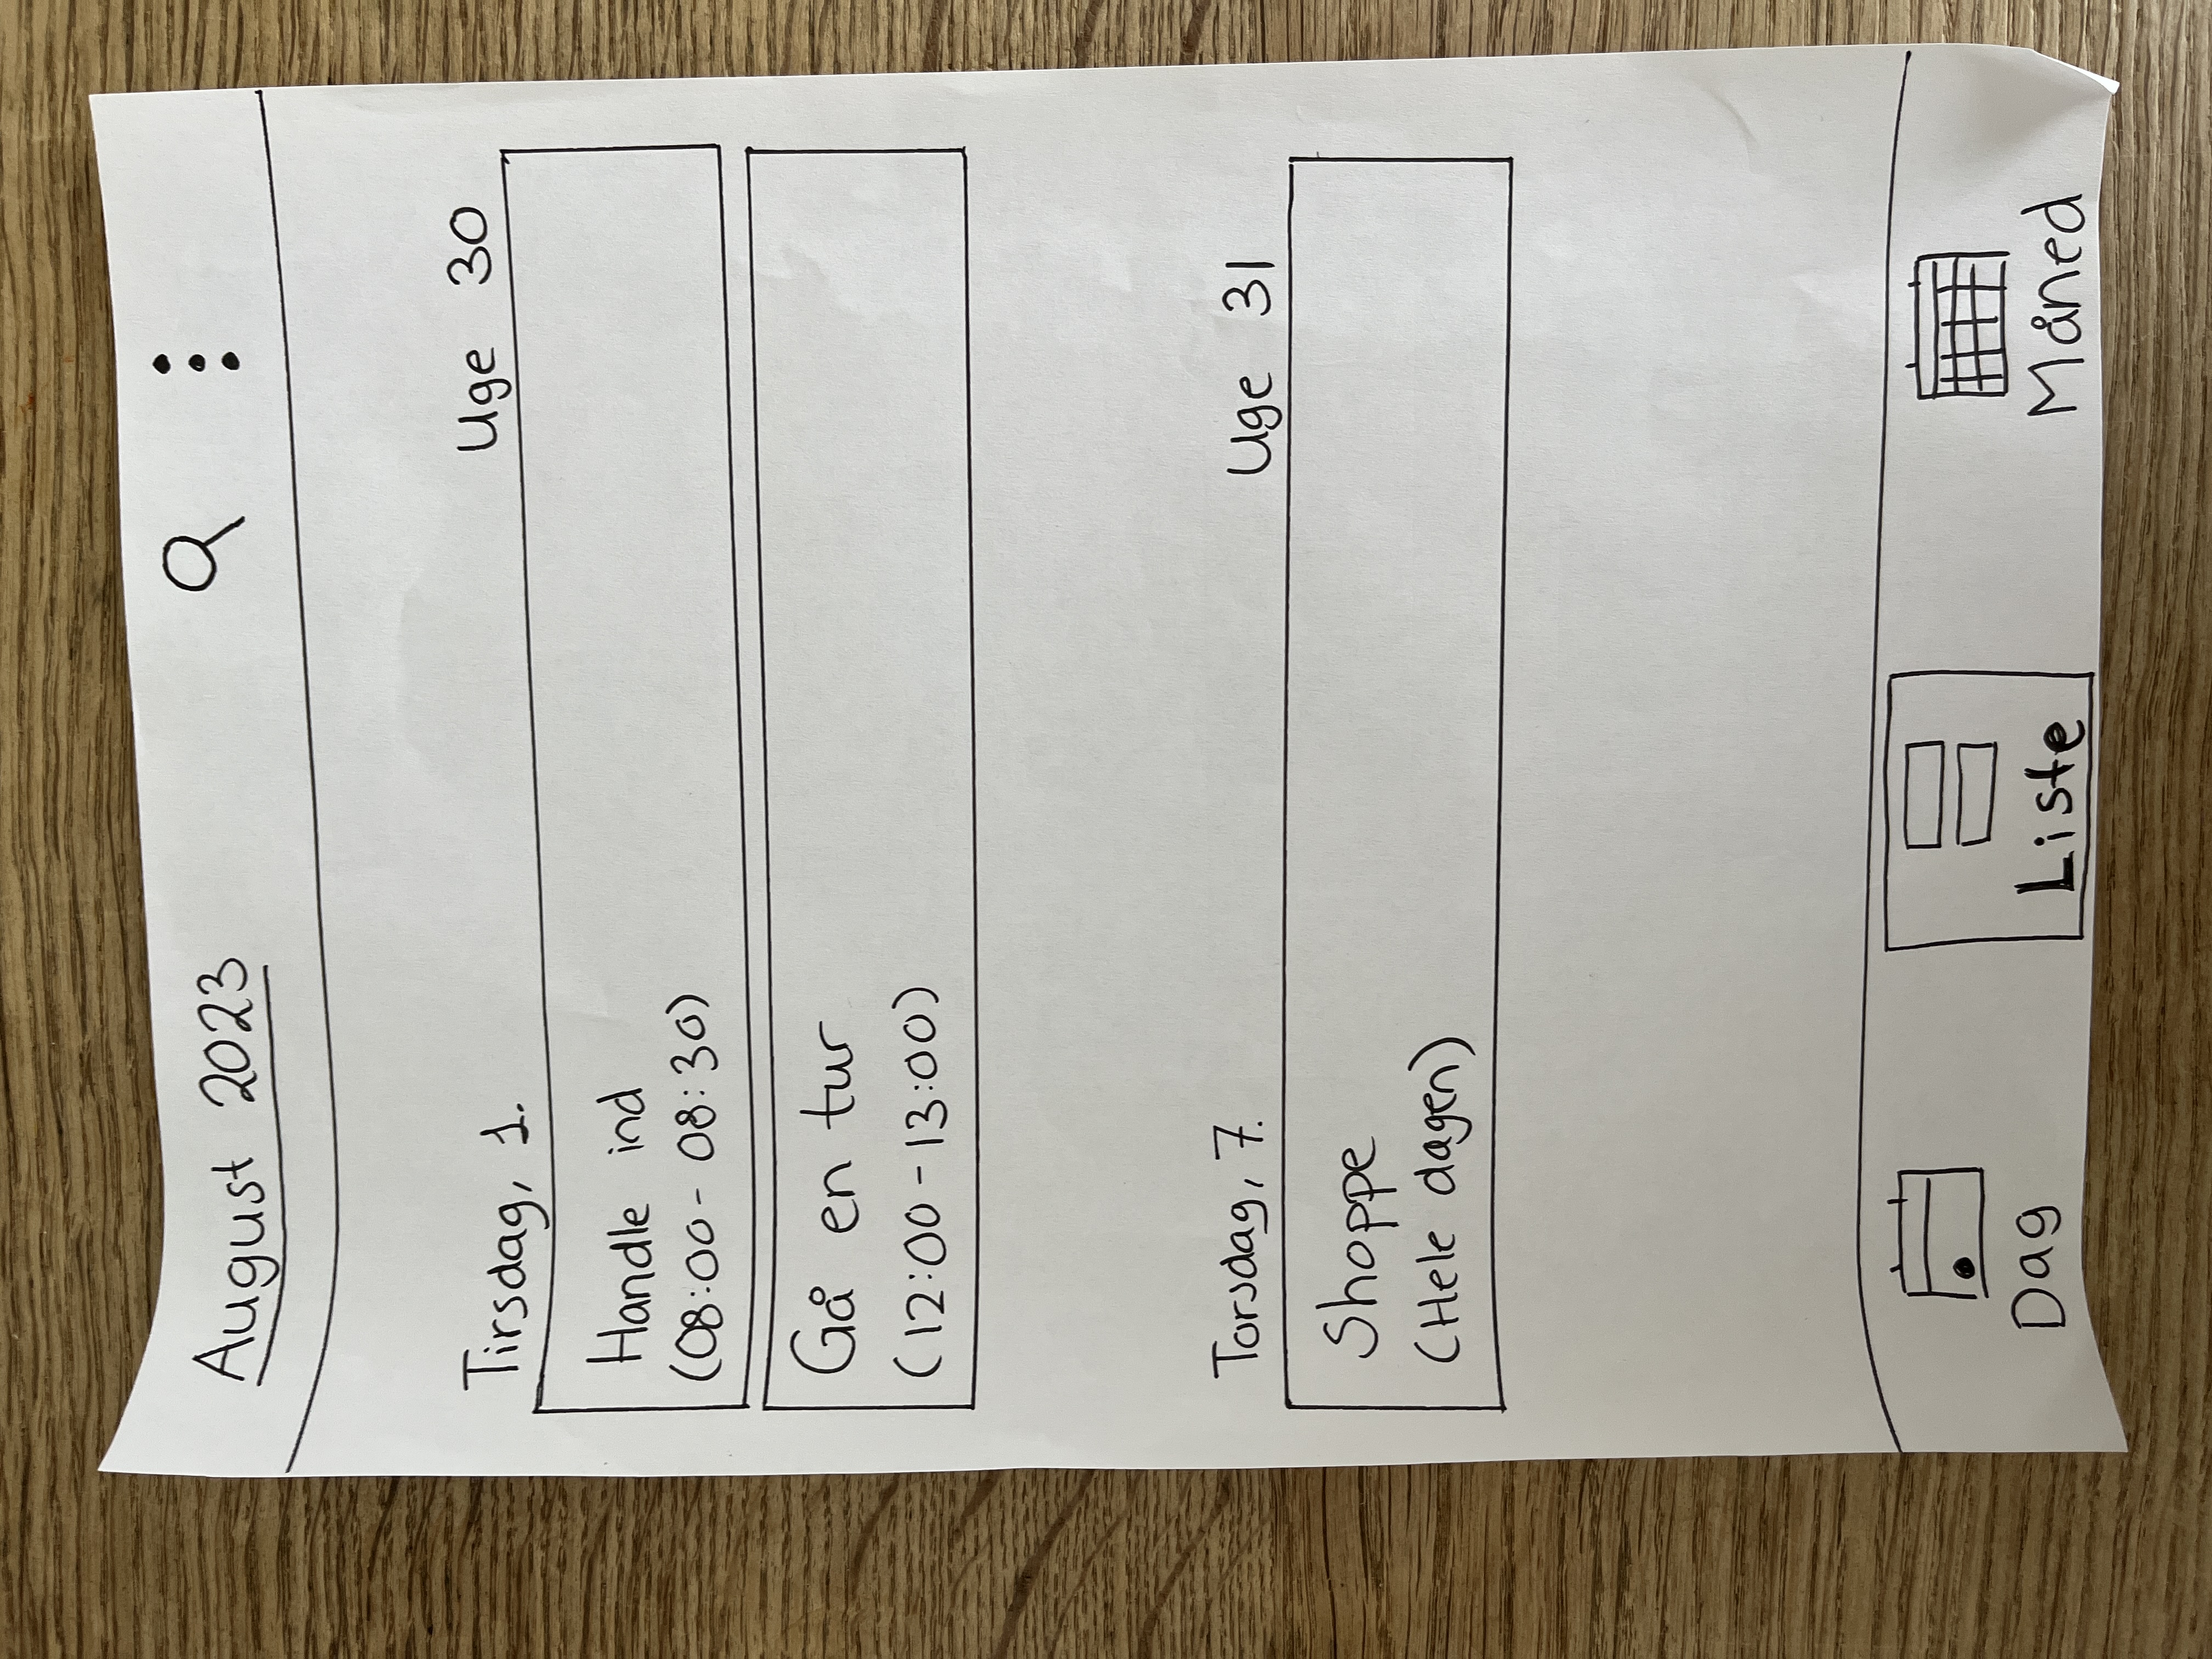 August 2023
Tirsdag, 1. Uge 30
Handle ind
(08:00 - 08:30)
Gå en tur
(12:00 - 13:00)
Torsdag, 7. Uge 31
Shoppe
(Hele dagen)
Dag Liste Måned